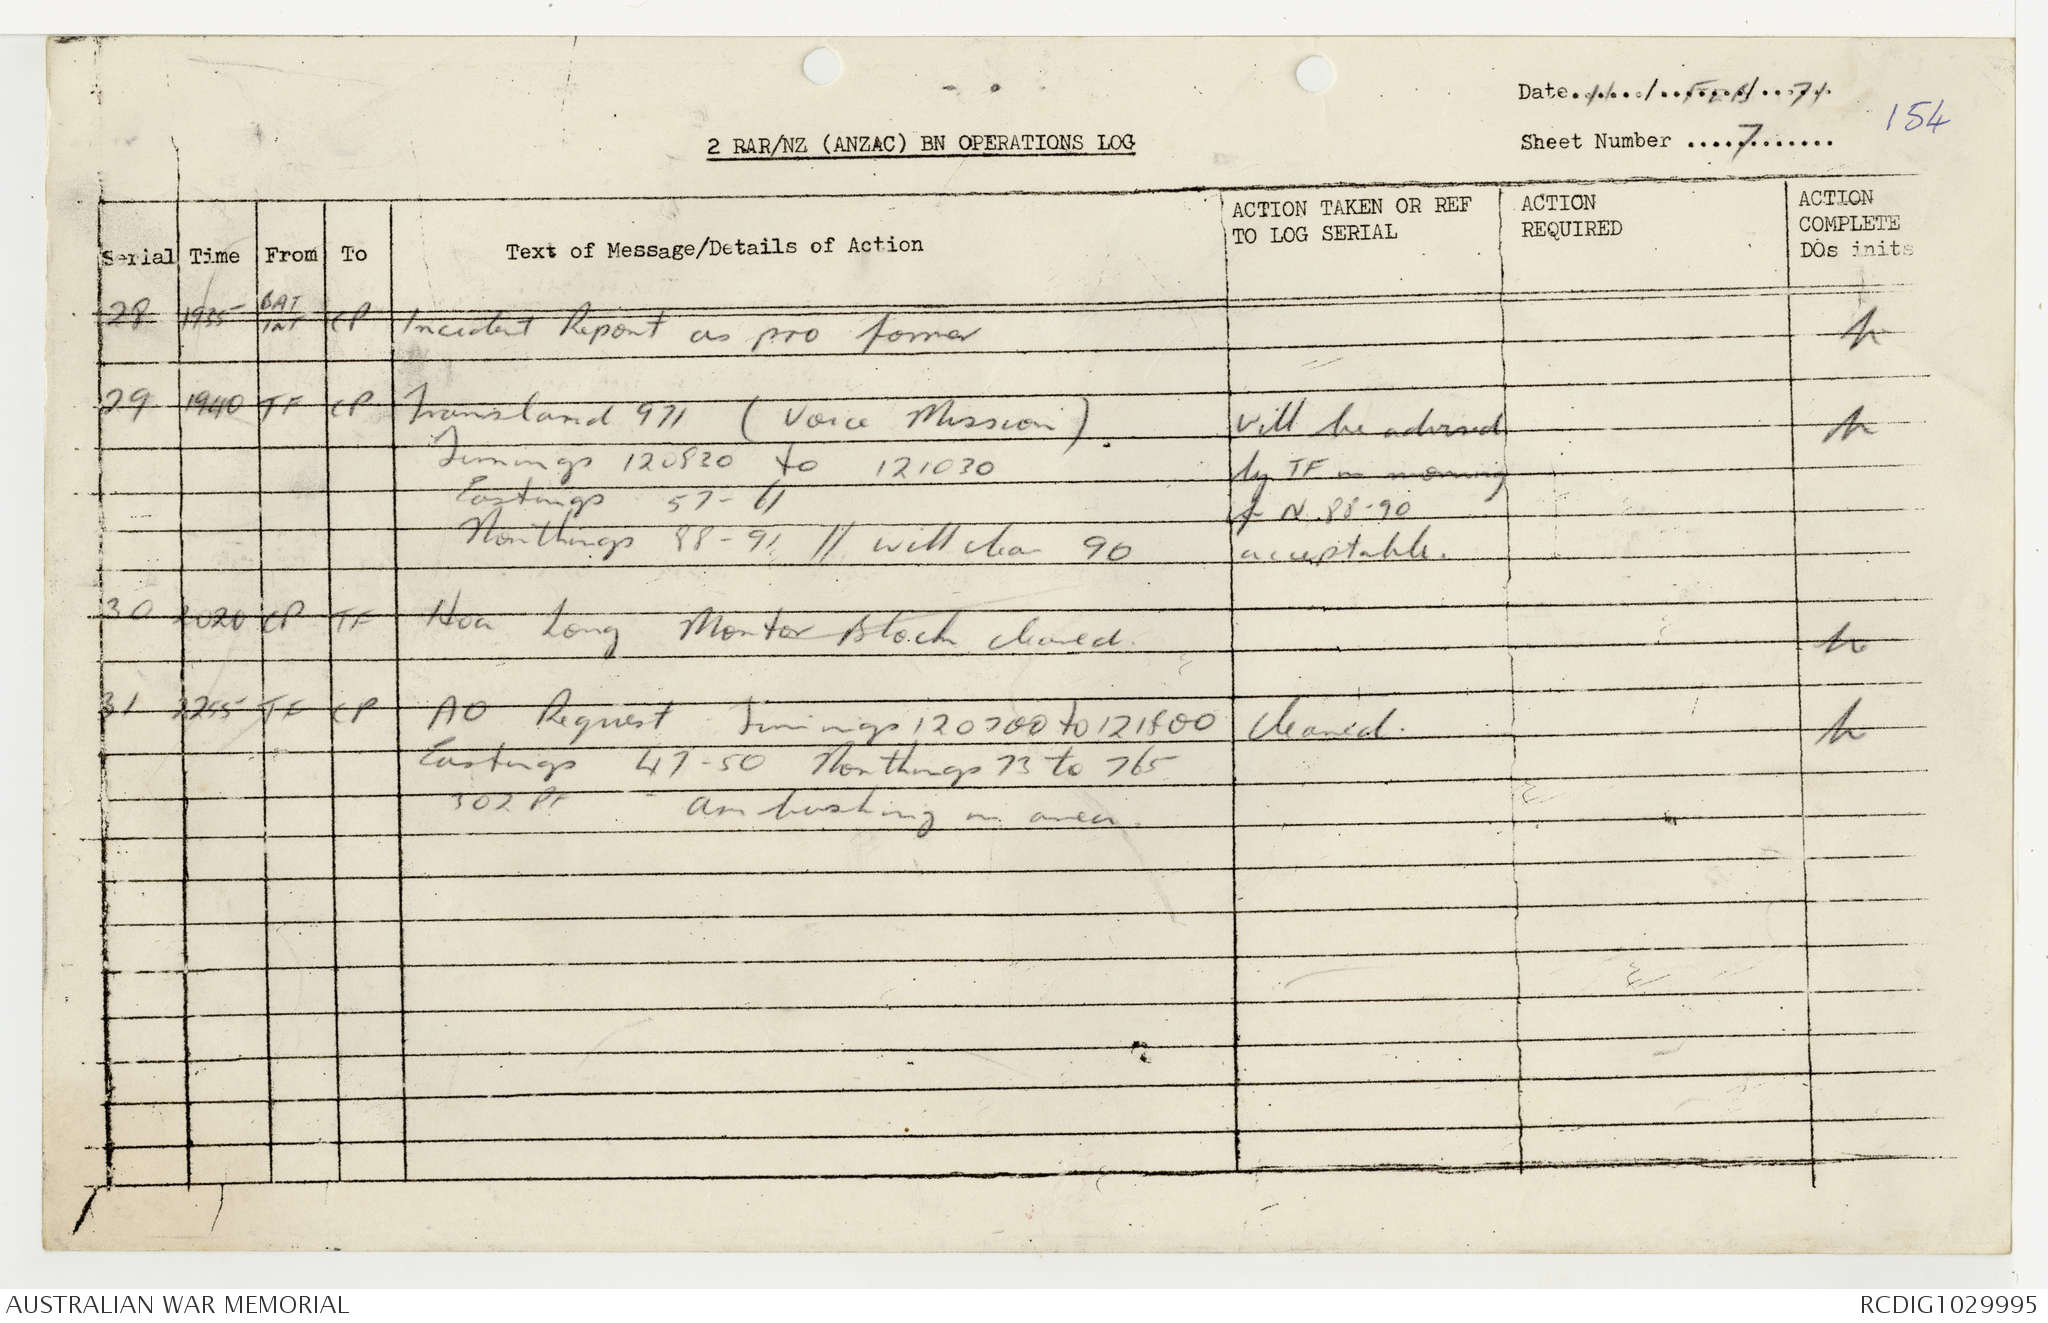 Date 11 / FEB / 71
154
2 RAR/NZ (ANZAC) BN OPERATIONS LOG
Sheet Number 7
Serial Time From To Text of Message/Details of Action ACTION TAKEN OR REF TO LOG SERIAL ACTION REQUIRED ACTION COMPLETE DOs inits
28 1935 BAT INT CP Incident Report as pro former
29 1940 TF CP 971 (Voice Mission). Will be advised
Timings 120830 to 121030 by TF in morning
Eastings 57-61 if N. 88-90
Northings 88-91 // will clear 90 acceptable.
30 2020 CP TF Hoa Long Mortar Block cleared.
31 2255 TF CP AO Request Timings 120700 to 121800 Cleared.
Eastings 47-50 Northings 73 to 765
302 PF ambushing in area.
AUSTRALIAN WAR MEMORIAL
RCDIG1029995